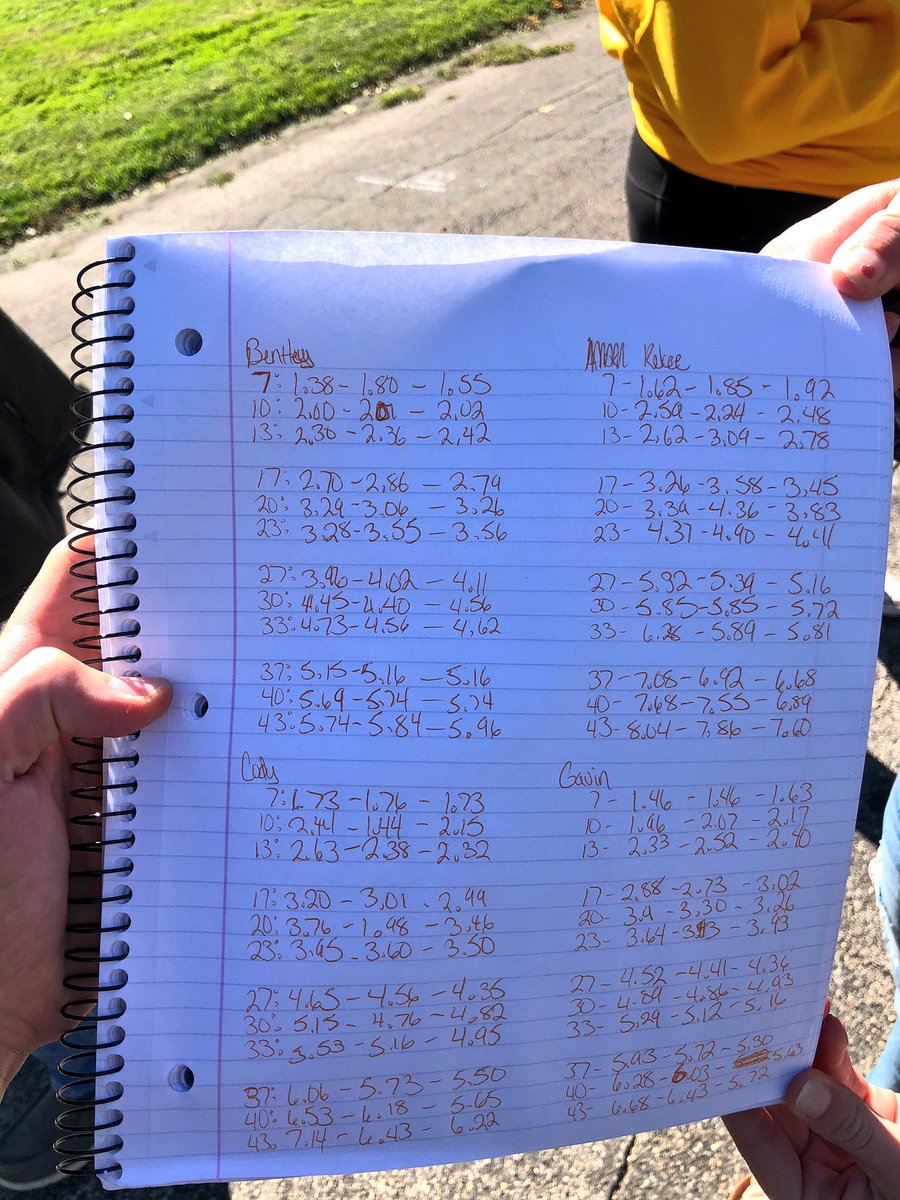 Bentley
7: 1.38 - 1.80 - 1.55
10: 2.00 - 2.01 - 2.02
13: 2.30 - 2.36 - 2.42
17: 2.70 - 2.86 - 2.79
20: 3.29 - 3.06 - 3.26
23: 3.28 - 3.55 - 3.56
27: 3.96 - 4.02 - 4.11
30: 4.45 - 4.40 - 4.56
33: 4.73 - 4.56 - 4.62
37: 5.15 - 5.16 - 5.16
40: 5.69 - 5.74 - 5.74
43: 5.74 - 5.84 - 5.96
Kekee
7 - 1.62 - 1.85 - 1.92
10 - 2.59 - 2.24 - 2.48
13 - 2.62 - 3.09 - 2.78
17 - 3.26 - 3.58 - 3.45
20 - 3.39 - 4.36 - 3.83
23 - 4.37 - 4.90 - 4.41
27 - 5.32 - 5.39 - 5.16
30 - 5.85 - 5.85 - 5.72
33 - 6.28 - 5.89 - 5.81
37 - 7.08 - 6.92 - 6.68
40 - 7.68 - 7.55 - 6.89
43 - 8.04 - 7.86 - 7.60
Cody
7: 1.73 - 1.76 - 1.73
10: 2.44 - 1.44 - 2.15
13: 2.63 - 2.38 - 2.32
17: 3.20 - 3.01 - 2.99
20: 3.76 - 1.98 - 3.46
23: 3.95 - 3.60 - 3.50
27: 4.65 - 4.56 - 4.35
30: 5.15 - 4.76 - 4.82
33: 5.53 - 5.16 - 4.95
37: 6.06 - 5.73 - 5.50
40: 6.53 - 6.18 - 5.65
43: 7.14 - 6.43 - 6.22
Gavin
7 - 1.46 - 1.46 - 1.63
10 - 1.96 - 2.07 - 2.17
13 - 2.33 - 2.52 - 2.40
17 - 2.88 - 2.73 - 3.02
20 - 3.9 - 3.30 - 3.26
23 - 3.64 - - 3.93
27 - 4.52 - 4.41 - 4.36
30 - 4.89 - 4.86 - 4.93
33 - 5.29 - 5.12 - 5.16
37 - 5.93 - 5.72 - 5.30
40 - 6.28 - 6.03 - 5.63
43 - 6.68 - 6.43 - 5.72